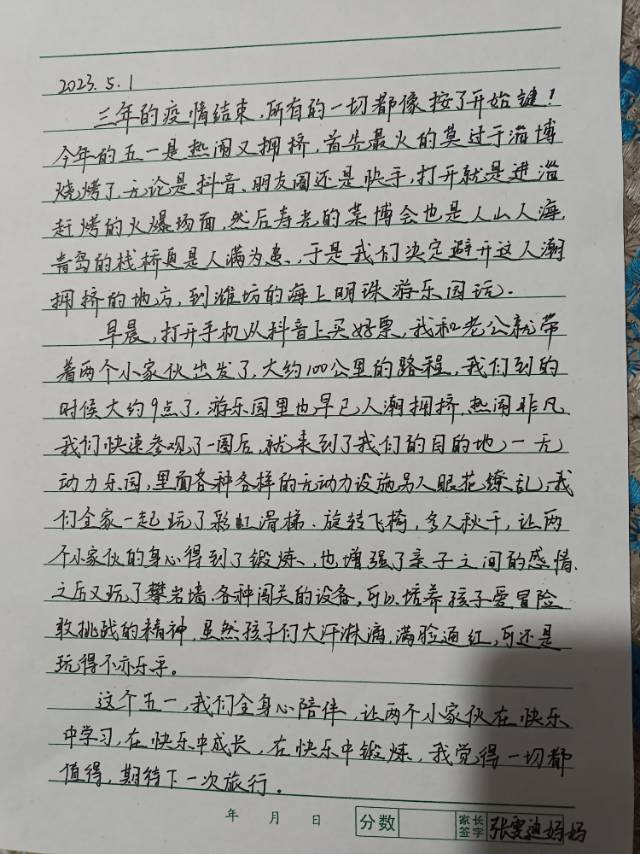 2023.5.1
三年的疫情结束,所有的一切都像按了开始键!
今年的五一是热闹又拥挤,首先最火的莫过于淄博
烧烤了,无论是抖音、朋友圈还是快手,打开就是进淄
赶烤的火爆场面,然后寿光的菜博会也是人山人海,
青岛的栈桥更是人满为患、于是我们决定避开这人潮
拥挤的地方,到潍坊的海上明珠游乐园玩.
早晨,打开手机从抖音上买好票,我和老公就带
着两个小家伙出发了,大约100公里的路程,我们到的
时候大约9点了,游乐园里也早已人潮拥挤,热闹非凡,
我们快速参观了一圈后,就来到了我们的目的地一无
动力乐园,里面各种各样的无动力设施另人眼花缭乱,我
们全家一起玩了彩虹滑梯、旋转飞椅,多人秋千,让两
个小家伙的身心得到了锻炼、也增强了亲子之间的感情.
之后又玩了攀岩墙.各种闯关的设备,可以培养孩子爱冒险
敢挑战的精神,虽然孩子们大汗淋漓,满脸通红,可还是
玩得不亦乐乎。
这个五一,我们全身心陪伴,让两个小家伙在快乐
中学习,在快乐中成长,在快乐中锻炼,我觉得一切都
值得,期待下一次旅行。
年 月 日 分数 家长签字 张雯迪妈妈